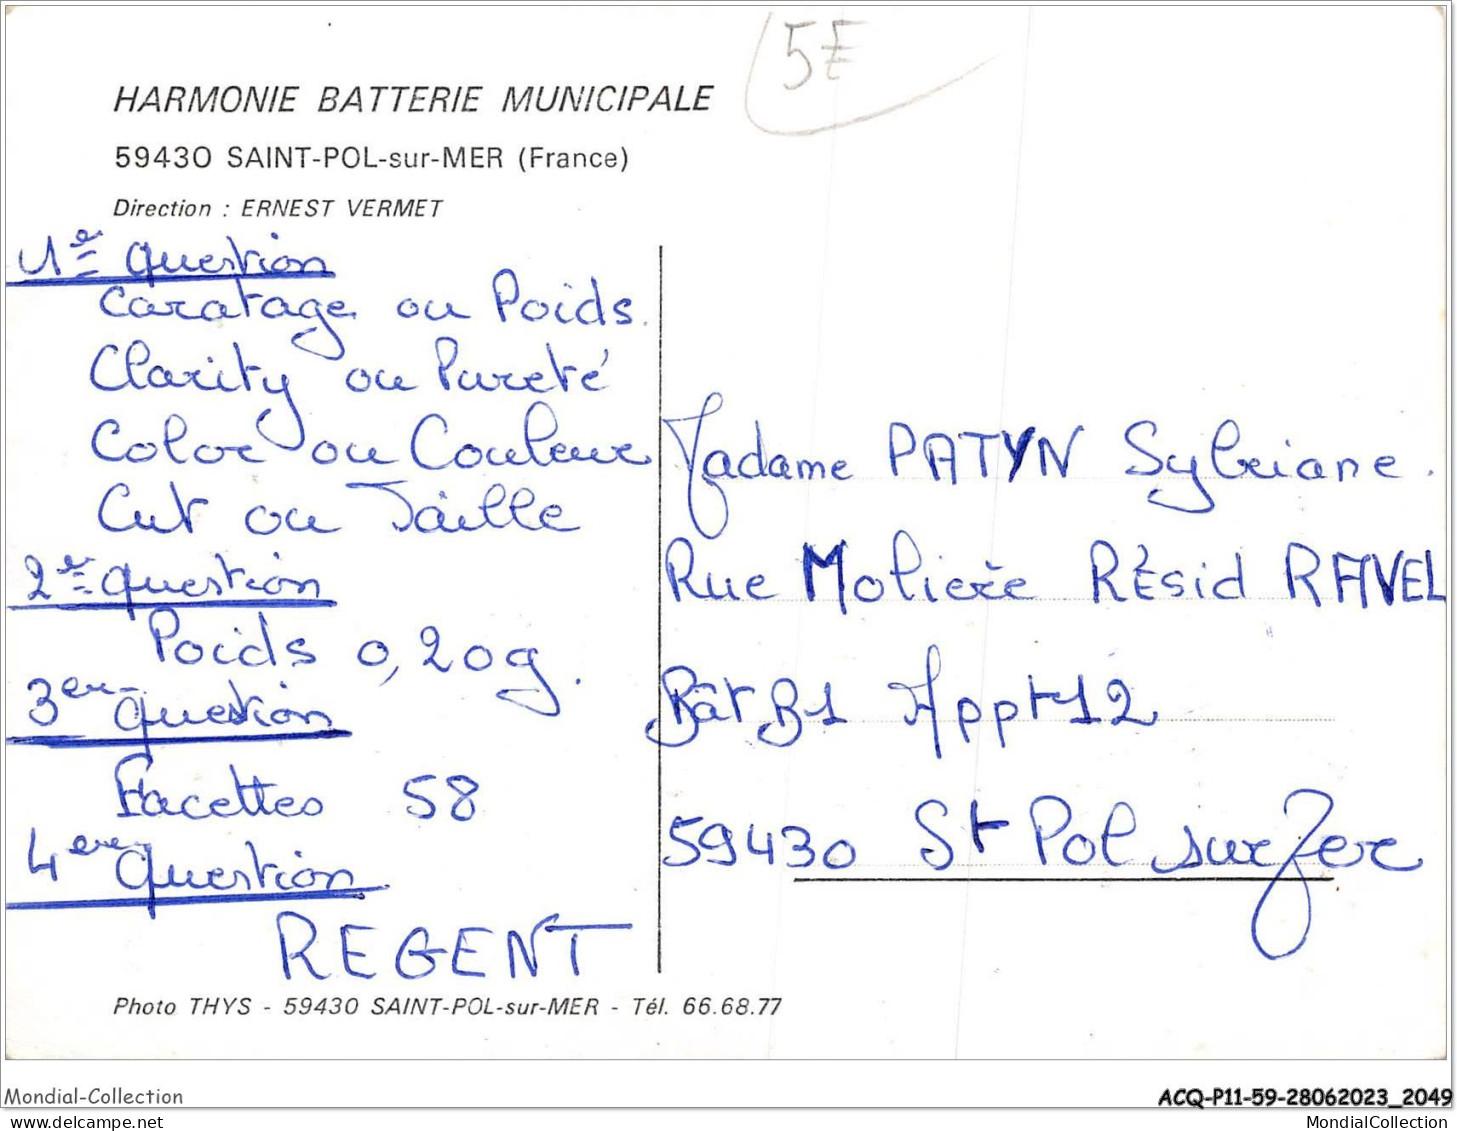 5E
HARMONIE BATTERIE MUNICIPALE
59430 SAINT-POL-sur-MER (France)
Direction : ERNEST VERMET
1re question
Caratage ou Poids.
Clarity ou Pureté
Color ou Couleur
Cut ou Taille
2re question
Poids 0,20g.
3ere question
Facettes 58
4ere question
REGENT
Madame PATYN Sylviane.
Rue Molière Résid RAVEL
Bât B1 Appt 12
59430 St Pol sur Mer
Photo THYS - 59430 SAINT-POL-sur-MER - Tél. 66.68.77
Mondial-Collection
ACQ-P11-59-28062023_2049
MondialCollection